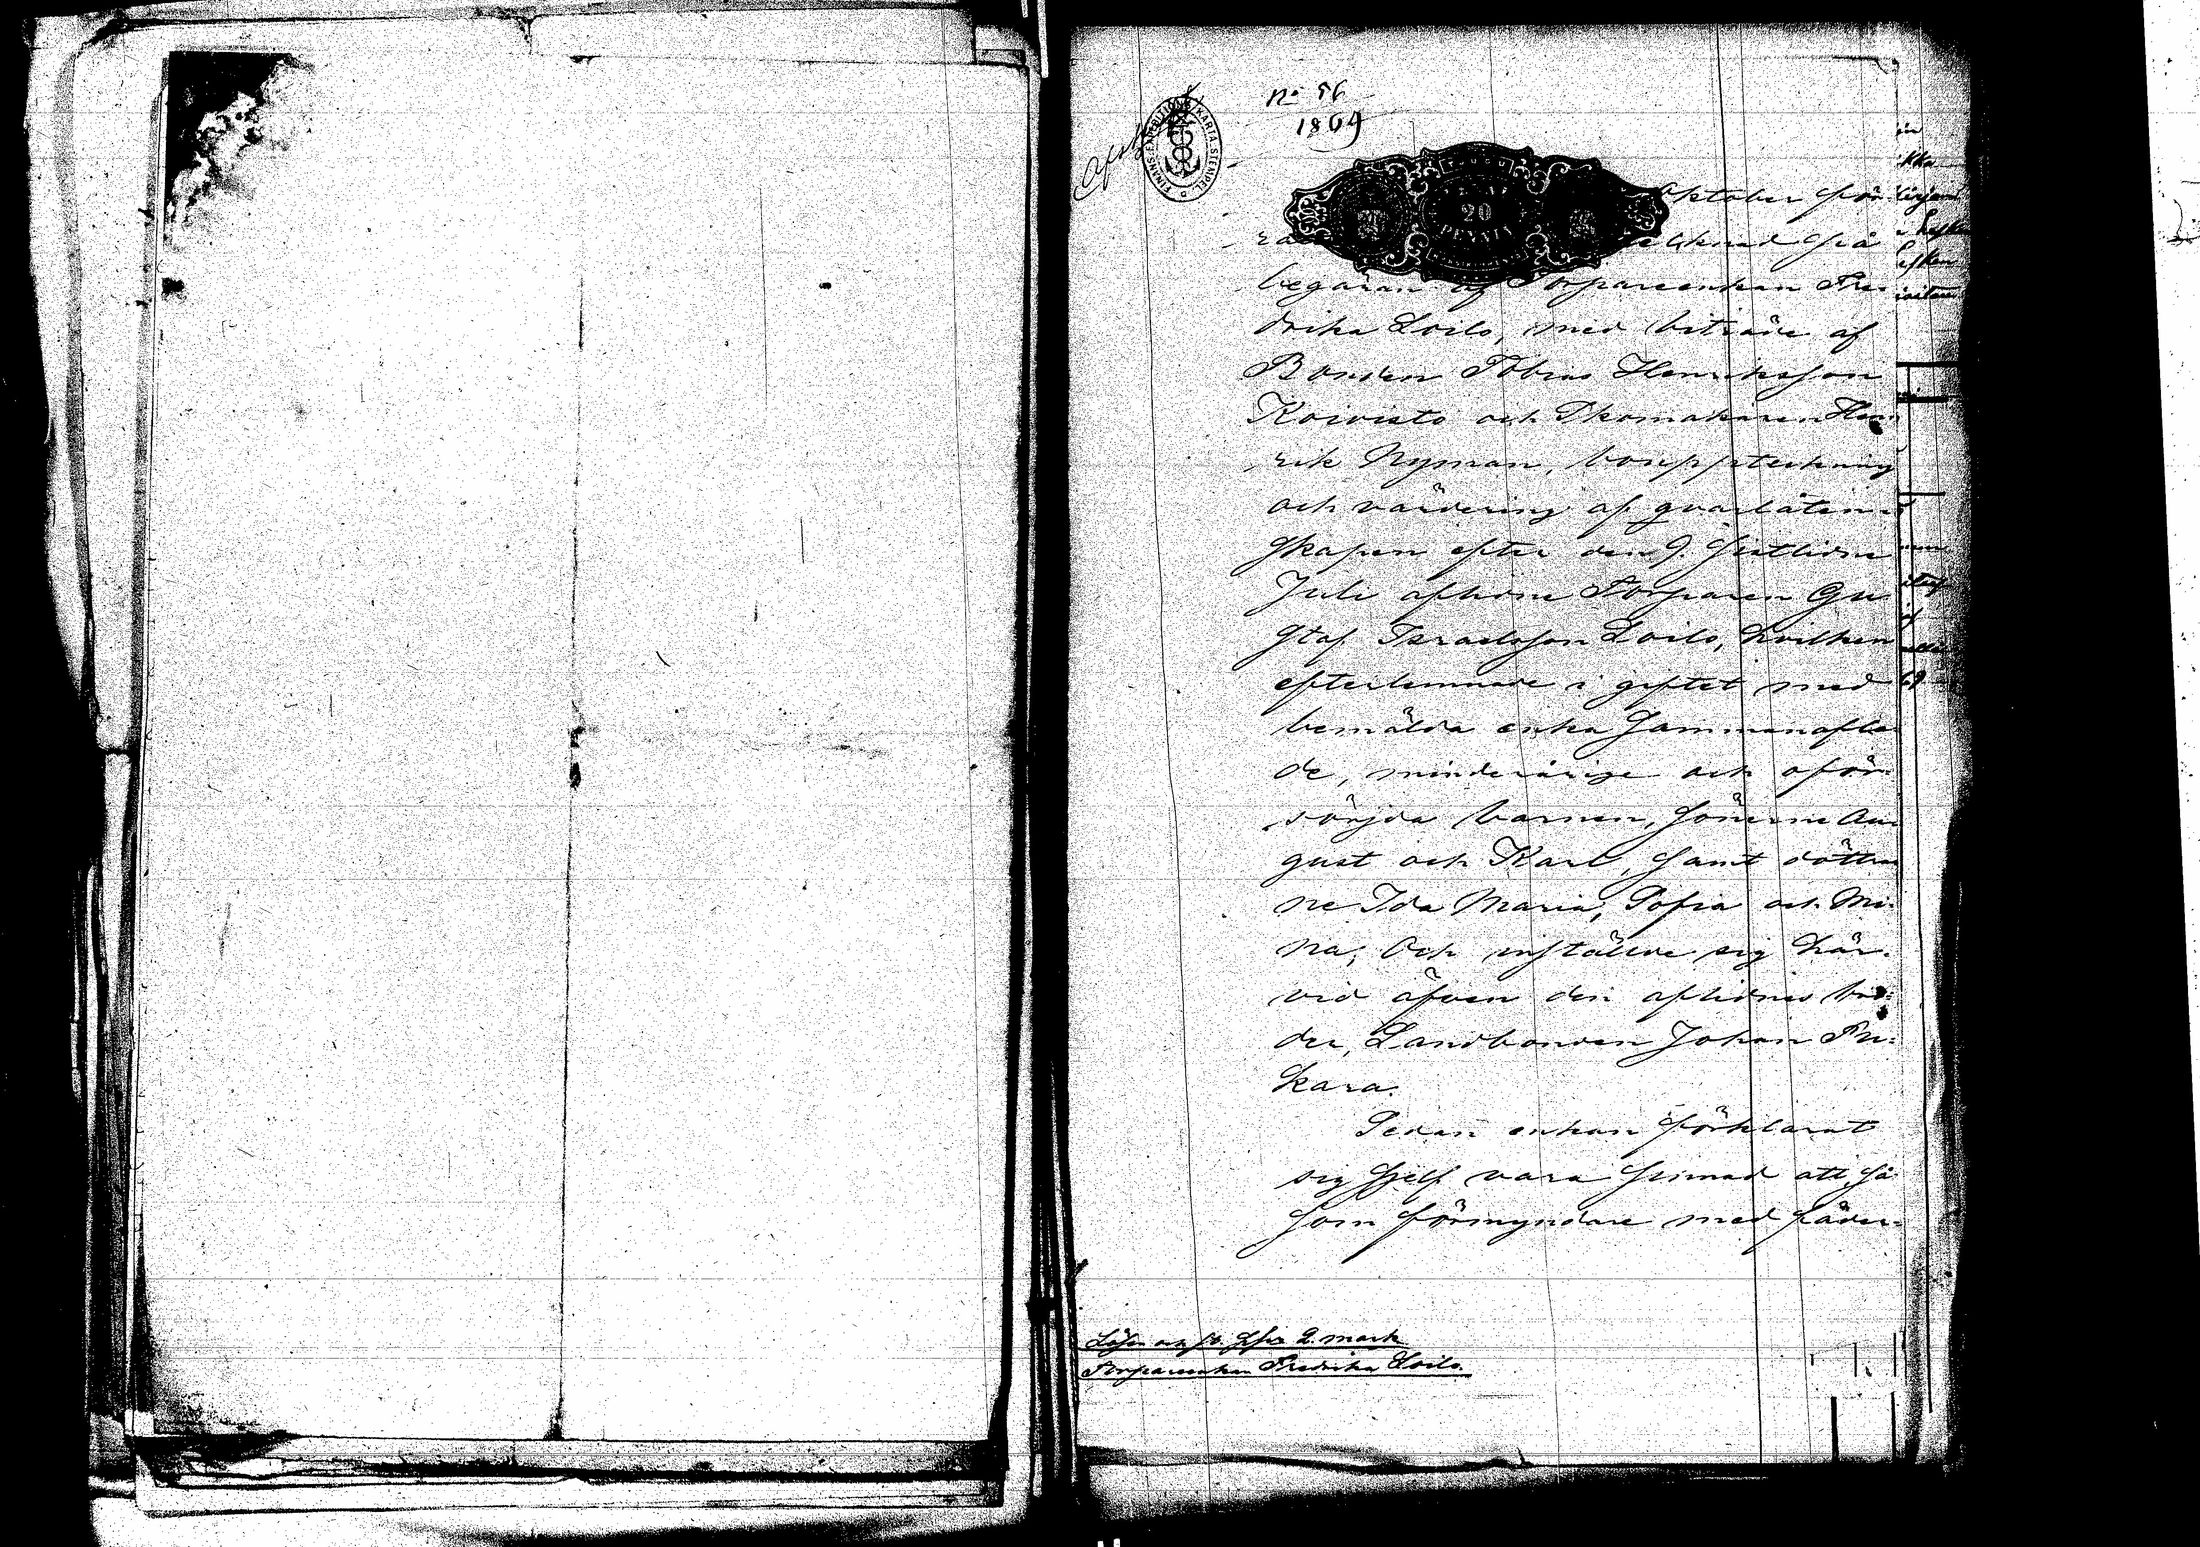 No 56
1869
Afskr
FINANS EXPEDITIONS KARTA STEMPEL
20
PENNIÄ
Oktober för
rä tecknad på
begäran af Torpareenkan Fre-
drika Loilo, med biträde af
Bonden Tobias Henriksson
Koivisto och Skomakaren Hen
rik Nyman, bouppteckning
och värdering af qvarlåten-
skapen efter den 9. sistlidne
Juli aflidne Torparen Gu
staf Israelsson Loilo, hvilken
efterlemnade i giftet med
bemälda enka sammanafla
de, minderårige och oför-
sörjda barnen, sönerne Au
gust och Karl, samt döttrar
ne Ida Maria, Sofia och Mi-
na; Och inställde sig här-
vid äfven den aflidnes bro-
der, Landbonden Johan Pu-
kara.
Sedan enkan förklarat
sig sjelf vara sinnad att, så
som förmyndare med fäder-
Lösen 2 mark
Torpareenkan Fredrika Loilo.